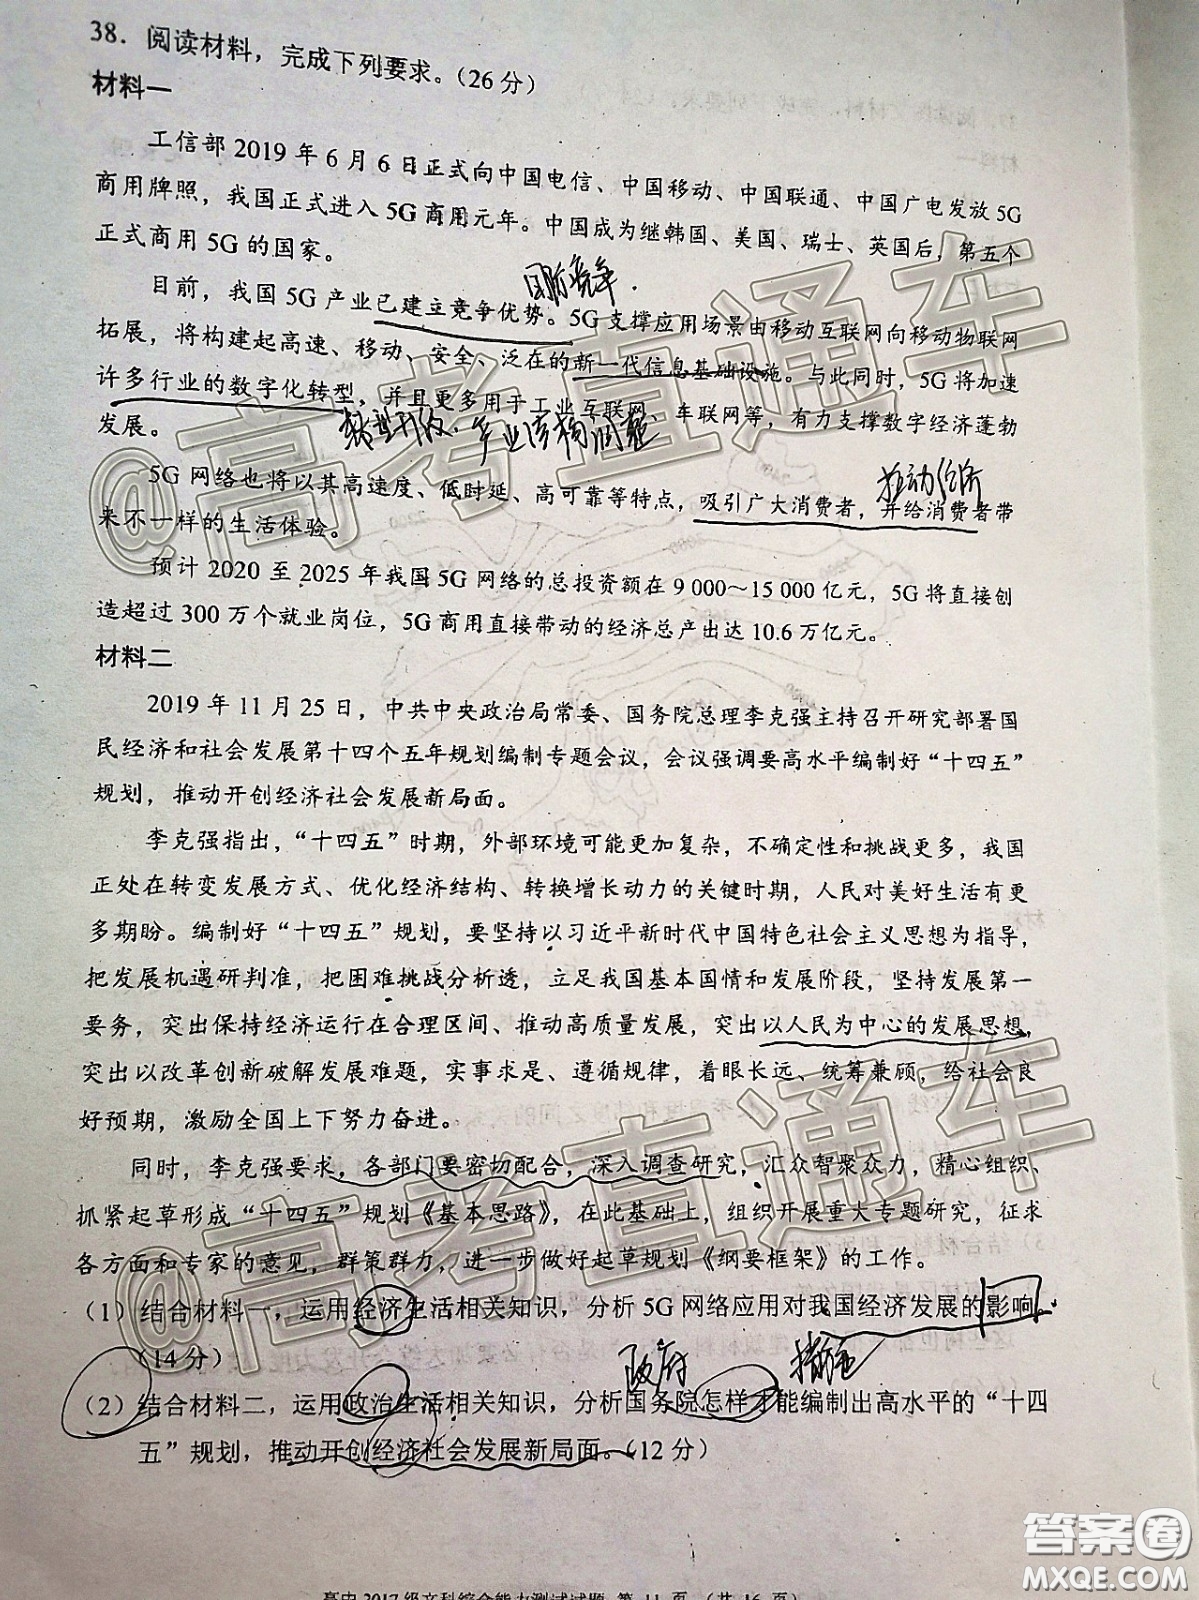 38．阅读材料，完成下列要求。（26分）
材料一
工信部 2019 年 6 月 6 日正式向中国电信、中国移动、中国联通、中国广电发放 5G
商用牌照，我国正式进入 5G 商用元年。中国成为继韩国、美国、瑞士、英国后，第五个
正式商用 5G 的国家。
国际竞争.
目前，我国 5G 产业已建立竞争优势。5G 支撑应用场景由移动互联网向移动物联网
拓展，将构建起高速、移动、安全、泛在的新一代信息基础设施。与此同时，5G 将加速
许多行业的数字化转型，并且更多用于工业互联网、车联网等，有力支撑数字经济蓬勃
发展。
转型升级. 产业结构调整
推动经济
5G 网络也将以其高速度、低时延、高可靠等特点，吸引广大消费者，并给消费者带
来不一样的生活体验。
预计 2020 至 2025 年我国 5G 网络的总投资额在 9 000～15 000 亿元，5G 将直接创
造超过 300 万个就业岗位，5G 商用直接带动的经济总产出达 10.6 万亿元。
材料二
2019 年 11 月 25 日，中共中央政治局常委、国务院总理李克强主持召开研究部署国
民经济和社会发展第十四个五年规划编制专题会议，会议强调要高水平编制好“十四五”
规划，推动开创经济社会发展新局面。
李克强指出，“十四五”时期，外部环境可能更加复杂，不确定性和挑战更多，我国
正处在转变发展方式、优化经济结构、转换增长动力的关键时期，人民对美好生活有更
多期盼。编制好“十四五”规划，要坚持以习近平新时代中国特色社会主义思想为指导，
把发展机遇研判准，把困难挑战分析透，立足我国基本国情和发展阶段，坚持发展第一
要务，突出保持经济运行在合理区间、推动高质量发展，突出以人民为中心的发展思想，
突出以改革创新破解发展难题，实事求是、遵循规律，着眼长远、统筹兼顾，给社会良
好预期，激励全国上下努力奋进。
同时，李克强要求，各部门要密切配合，深入调查研究，汇众智聚众力，精心组织、
抓紧起草形成“十四五”规划《基本思路》，在此基础上，组织开展重大专题研究，征求
各方面和专家的意见，群策群力，进一步做好起草规划《纲要框架》的工作。
（1）结合材料一，运用经济生活相关知识，分析 5G 网络应用对我国经济发展的影响。
（14 分）
政府 措施
（2）结合材料二，运用政治生活相关知识，分析国务院怎样才能编制出高水平的“十四
五”规划，推动开创经济社会发展新局面。（12 分）
高中 2017 级文科综合能力测试试题 第 11 页 （共 16 页）
@高考直通车
@高考直通车
答案圈
MXQE.COM